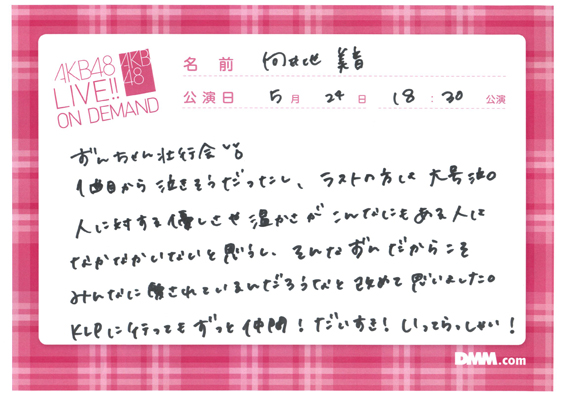 AKB48
LIVE!!
ON DEMAND
AKB
48
名前 向井地 美音
公演日 5月 24日 18:30 公演
ずんちゃん壮行会
1曲目から泣きそうだったし、ラストの方しく大号泣。
人に対する優しさや温かさがこんなにもある人は
なかなかいないと思うし、そんなずんだからこそ
みんなに愛されているんだろうなと改めて思いました。
KLPに行ってもずっと仲間！だいすき！いってらっしゃい！
DMM.com